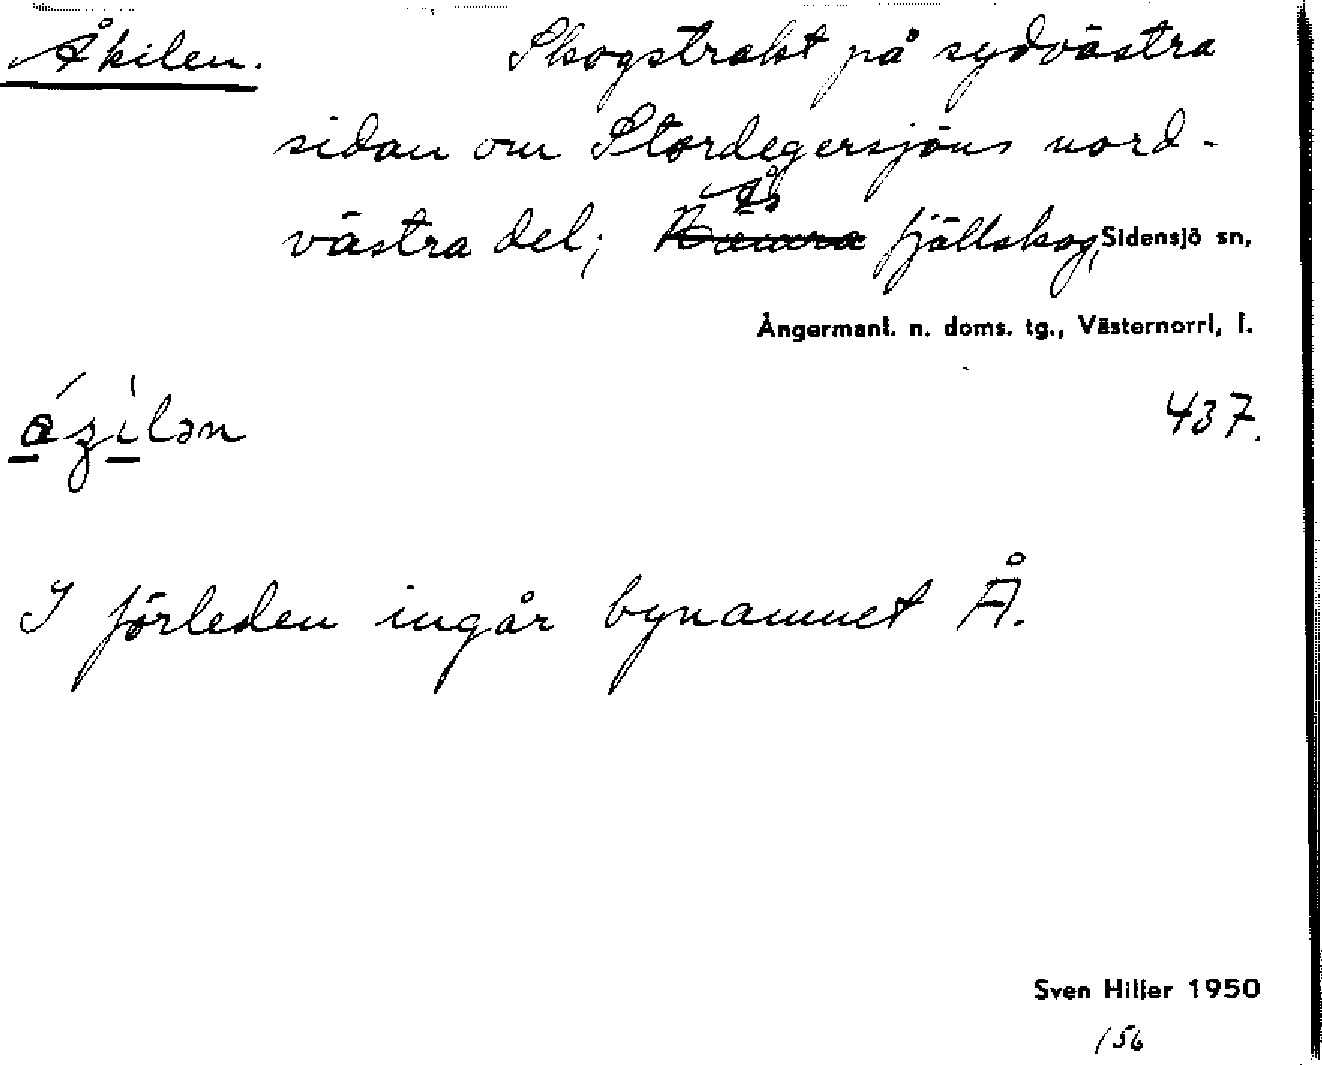 Åkilen. Skogstrakt på sydvästra
sidan om Stordegersjöns nord-
Ås
västra del; fjällskog, Sidensjö sn,
Ångermanl. n. doms. tg., Västernorrl, l.
437.
I förleden ingår bynamnet Å.
Sven Hiller 1950
/56